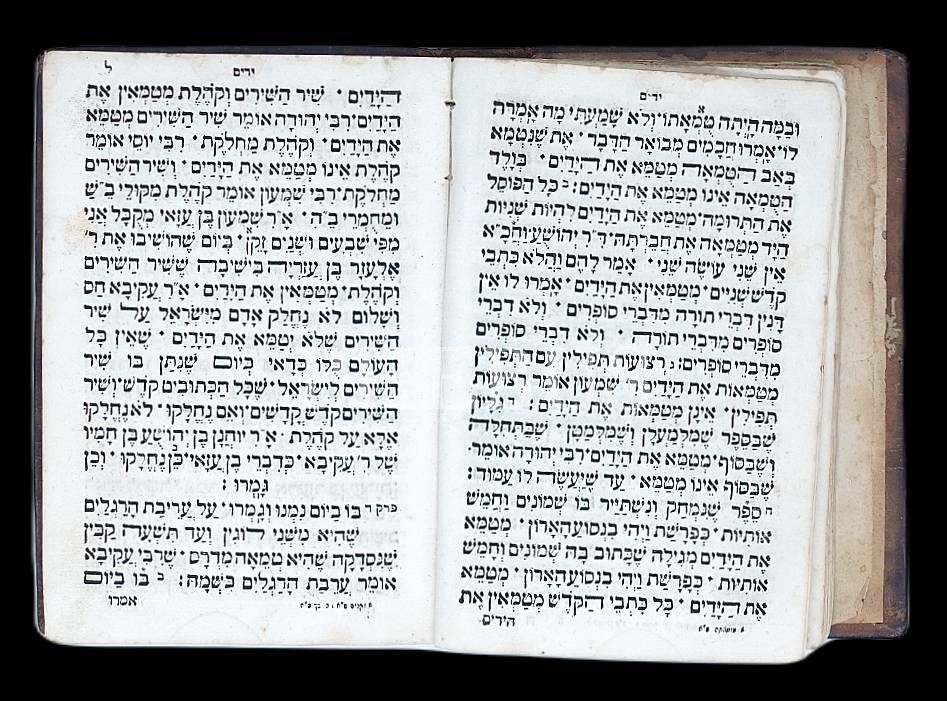 ידים
ובמה היתה טומאתו ולא שמעתי מה אמרה
לו אמרו חכמים מבואר הדבר · את שנטמא
באב הטומאה מטמא את הידים · בולד
הטומאה אינו מטמא את הידים : ב כל הפוסל
את התרומה מטמא את הידים להיות שניות
היד מטמאה את חברתה ד״ר יהושע וחכ״א
אין שני עושה שני · אמר להם והלא כתבי
קדש שניים · מטמאין את הידים · אמרו לו אין
דנין דברי תורה מדברי סופרים · ולא דברי
סופרים מדברי תורה · ולא דברי סופרים
מדברי סופרים : ג רצועות תפילין עם התפילין
מטמאות את הידים ר׳ שמעון אומר רצועות
תפילין · אינן מטמאות את הידים : ד גליון
שבספר שמלמעלן ושמלמטן · שבתחלה
ושבסוף · מטמא את הידים · רבי יהודה אומר
שבסוף אינו מטמא · עד שיעשה לו עמוד :
ה ספר שנמחק ונשתייר בו שמונים וחמש
אותיות · כפרשת ויהי בנסוע הארון · מטמא
את הידים מגילה שכתוב בה שמונים וחמש
אותיות · כפרשת ויהי בנסוע הארון · מטמא
את הידים · כל כתבי הקדש מטמאין את
הידים
ידים
ל
הידים · שיר השירים וקהלת מטמאין את
הידים · רבי יהודה אומר שיר השירים מטמא
את הידים · וקהלת מחלקת · רבי יוסי אומר
קהלת אינו מטמא את הידים · ושיר השירים
מחלקת · רבי שמעון אומר קהלת מקולי ב״ש
ומחומרי ב״ה · א״ר שמעון בן עזאי מקבל אני
מפי שבעים ושנים זקן · ביום שהושיבו את ר׳
אלעזר בן עזריה בישיבה ששיר השירים
וקהלת · מטמאין את הידים · א״ר עקיבא חס
ושלום לא נחלק אדם מישראל על שיר
השירים שלא יטמא את הידים · שאין כל
העולם כלו כדאי כיום שנתן בו שיר
השירים לישראל · שכל הכתובים קדש ושיר
השירים קדש קדשים · ואם נחלקו · לא נחלקו
אלא על קהלת · א״ר יוחנן בן יהושע בן חמיו
של ר׳ עקיבא · כדברי בן עזאי כן נחלקו · וכן
גמרו :
פרק ד בו ביום נמנו וגמרו · על עריבת הרגלים
שהיא משני לוגין ועד תשעה קבין
שנסדקה שהיא טמאה מדרס · שרבי עקיבא
אומר ערבת הרגלים כשמה : ב בו ביום
אמרו